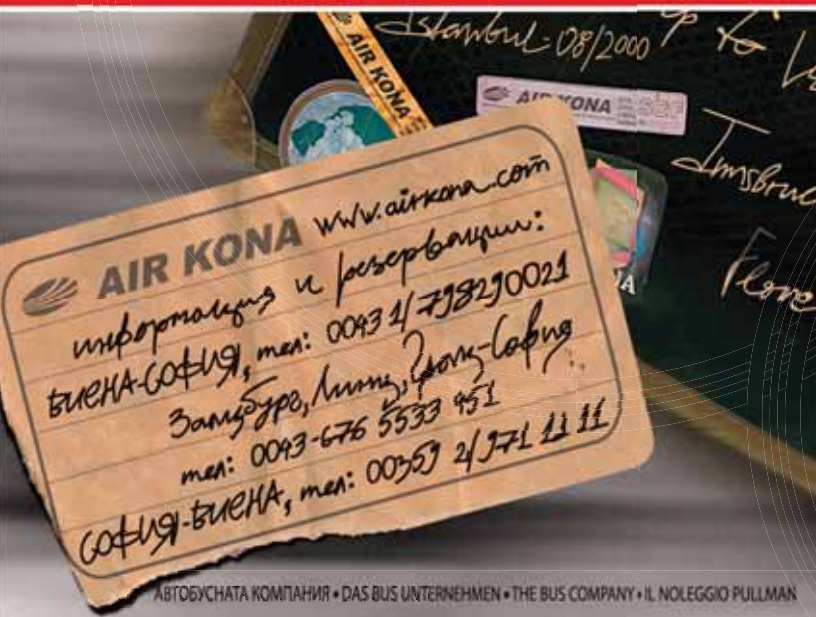 Istanbul-08/2000
up to
AIR KONA
AIR KONA
Innsbruc
Flore
AIR KONA www.airkona.com
информация и резервации:
ВИЕНА-СОФИЯ, тел: 0043 1/798290021
Залцбург, Линц, Грац-София
тел: 0043-676 5533 951
СОФИЯ-ВИЕНА, тел: 00359 2/971 11 11
АВТОБУСНАТА КОМПАНИЯ • DAS BUS UNTERNEHMEN • THE BUS COMPANY • IL NOLEGGIO PULLMAN